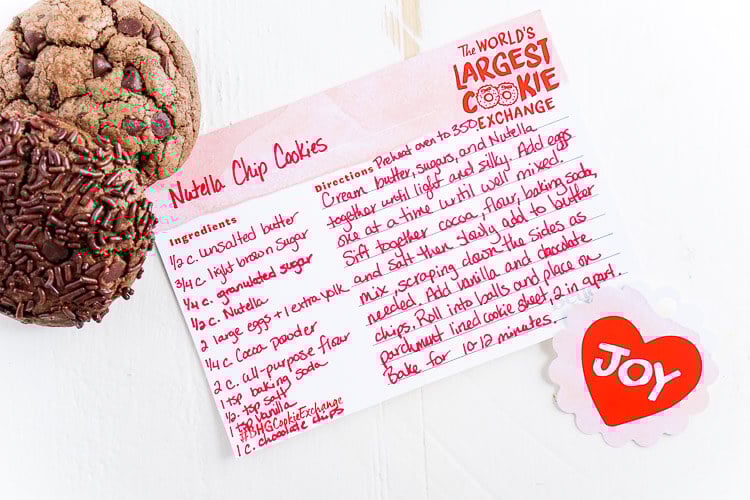 The WORLD'S
LARGEST
COOKIE
EXCHANGE
Nutella Chip Cookies
Ingredients
1/2 c. unsalted butter
3/4 c. light brown sugar
1/4 c. granulated sugar
1/2 c. Nutella
2 large eggs + 1 extra yolk
1/4 c. Cocoa Powder
2 c. all-purpose flour
1 tsp baking soda
1/2 tsp salt
1 tsp vanilla
#BHGCookieExchange
1 c. chocolate chips
Directions Preheat oven to 350
Cream butter, sugars, and Nutella
together until light and silky. Add eggs
one at a time until well mixed.
Sift together cocoa, flour, baking soda,
and salt then slowly add to butter
mix scraping down the sides as
needed. Add vanilla and chocolate
chips. Roll into balls and place on
parchment lined cookie sheet, 2 in apart.
Bake for 10-12 minutes.
JOY